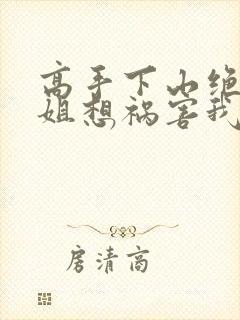 高手下山绝
姐想祸害我
房清高